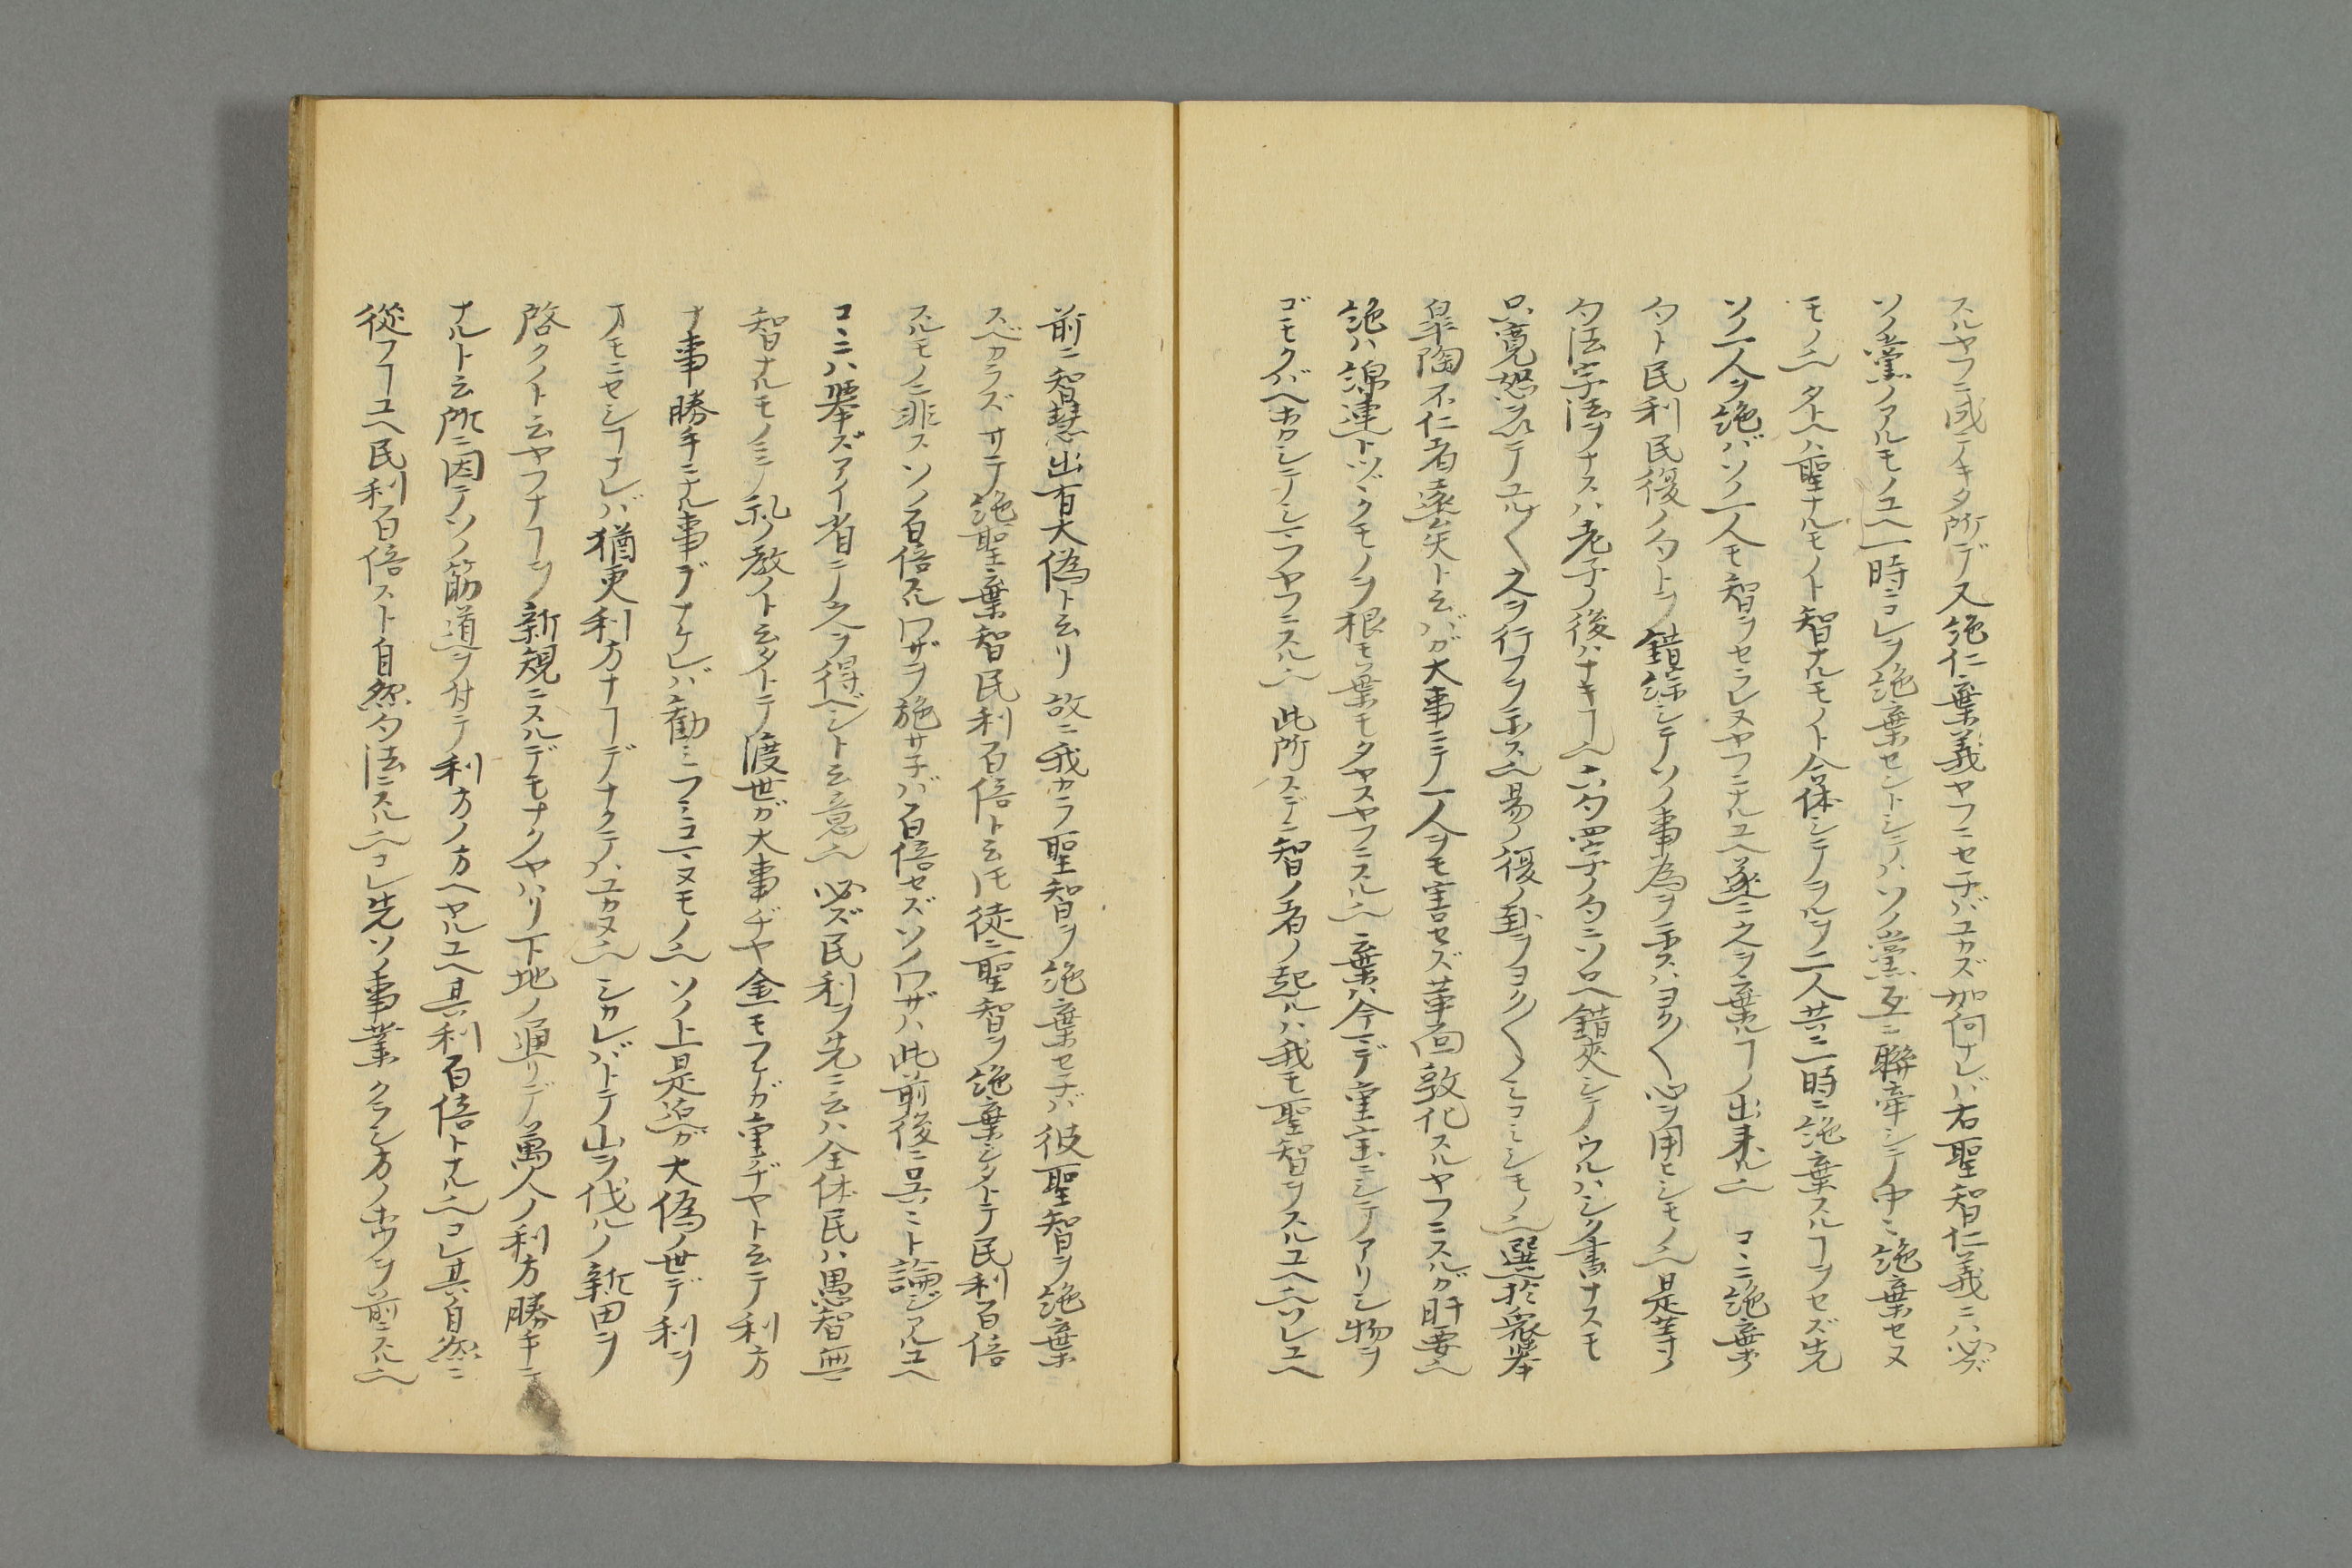 スルヤフニ成テキタ所デス絶仁棄義ヤフニセ子バユカズ如何ナレバ右聖智仁義ニハ必ズ
ソノ黨ノアルモノユヘ一時ニコレヲ絶棄セントシテハソノ黨互ニ聯牽シテ中〻絶棄セヌ
モノ也タトヘハ聖ナルモノト智ナルモノト合体シテヲルヲ二人共ニ一時ニ絶棄スルヿヲセズ先
ソノ一人ヲ絶バソノ一人モ智ヲセラレヌヤフニナルユヘ遂ニ之ヲ棄ルヿノ出来ル也 コヽニ絶棄ノ
句ト民利民復ノ句トヲ錯綜シテソノ事為ヲ示スハヨク〳〵心ヲ用ヒシモノ也是等ノ
句法字法ヲナスハ老子ノ後ハナキヿ也六句四字ノ句ニソロヘ錯夾シテウルハシク書ナスモ
只寛恕ヲ以テユル〳〵之ヲ行フヲ示ス也易ノ復ノ卦ヲヨク〳〵ノミコミシモノ也選於衆舉
皐陶不仁者遠矣ト云バガ大事ニテ一人ヲモ害セズ革面敦化スルヤフニスルガ肝要也
絶ハ綿連トツヾクモノヲ根モ葉モタヤスヤフニスル也棄ハ今マデ重宝ニシテアリシ物ヲ
ゴモクバヘホカシテシマフヤフニスル也此所スデニ智ノ者ノ起ルハ我モ聖智ヲスルユヘ也ソレユヘ
前ニ智慧出有大偽ト云リ故ニ我カラ聖智ヲ絶棄セ子バ彼聖智ヲ絶棄
スベカラズサテ絶聖棄智民利百倍ト云𪜈徒ニ聖智ヲ絶棄シタトテ民利百倍
スルモノニ非スソノ百倍スルワザヲ施サ子バ百倍セズソノワザハ此前後ニ具ニト論ジアルユヘ
コヽニハ舉ズアイ省テ之ヲ得ベシト云意也必ズ民利ヲ先ニ云ハ全体民ハ愚智無
智ナルモノユヘ礼ノ教ノト云タトテ渡世ガ大事ヂヤ金モフケガ重ヂヤト云テ利方
ナ事勝手ニナル事デナケレバ勧ミフミコマヌモノ也ソノ上是迠ガ大偽ノ世デ利ヲ
力モニセシヿナレバ猶更利方ナヿデナクテハユカヌ也シカレバトテ山ヲ伐ルノ新田ヲ
啓クノト云ヤフナヿヲ新規ニスルデモナクヤハリ下地ノ通リデ萬人ノ利方勝手ニ
ナルト云所ニ因テソノ筋道ヲ付テ利方ノ方ヘヤルユヘ其利百倍トナル也コレ其自然ニ
從フヿユヘ民利百倍スト自然句法ニスル也コレ先ソノ事業クラシ方ノホウヲ前ニスル也